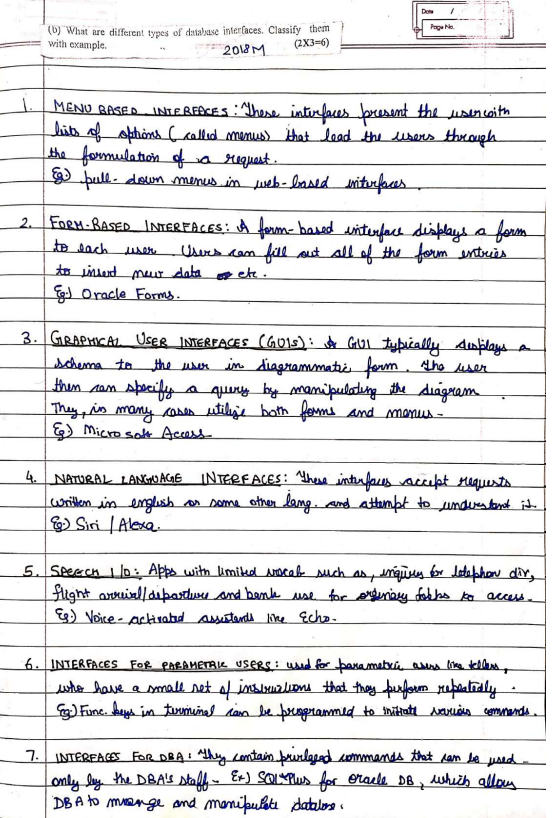 Date /
Page No.
(b) What are different types of database interfaces. Classify them
with example. (2X3=6)
2018M
1. MENU BASED INTERFACES: These interfaces present the user with
lists of options (called menus) that lead the users through
the formulation of a request.
Eg:) pull-down menus in web-based interfaces.
2. FORM-BASED INTERFACES: A form-based interface displays a form
to each user. Users can fill out all of the form entries
to insert new data etc.
Eg:) Oracle Forms.
3. GRAPHICAL USER INTERFACES (GUIs): A GUI typically displays a
schema to the user in diagrammatic form. The user
then can specify a query by manipulating the diagram.
They, in many cases utilize both forms and menus-
Eg:) Microsoft Access
4. NATURAL LANGUAGE INTERFACES: These interfaces accept requests
written in english or some other lang. and attempt to understand it.
Eg:) Siri / Alexa.
5. SPEECH I/O: Apps with limited vocab such as, inquiry for telephon dir,
flight arrival/departure and bank use for ordinary folks to access.
Eg:) Voice-activated assistants like Echo-
6. INTERFACES FOR PARAMETRIC USERS: used for parametric users like tellers,
who have a small set of instructions that they perform repeatedly.
Eg:) Func. keys in terminal can be programmed to initiate various commands.
7. INTERFACES FOR DBA: They contain privileged commands that can be used
only by the DBA's staff- Ex) SQL*Plus for oracle DB, which allows
DBA to manage and manipulate